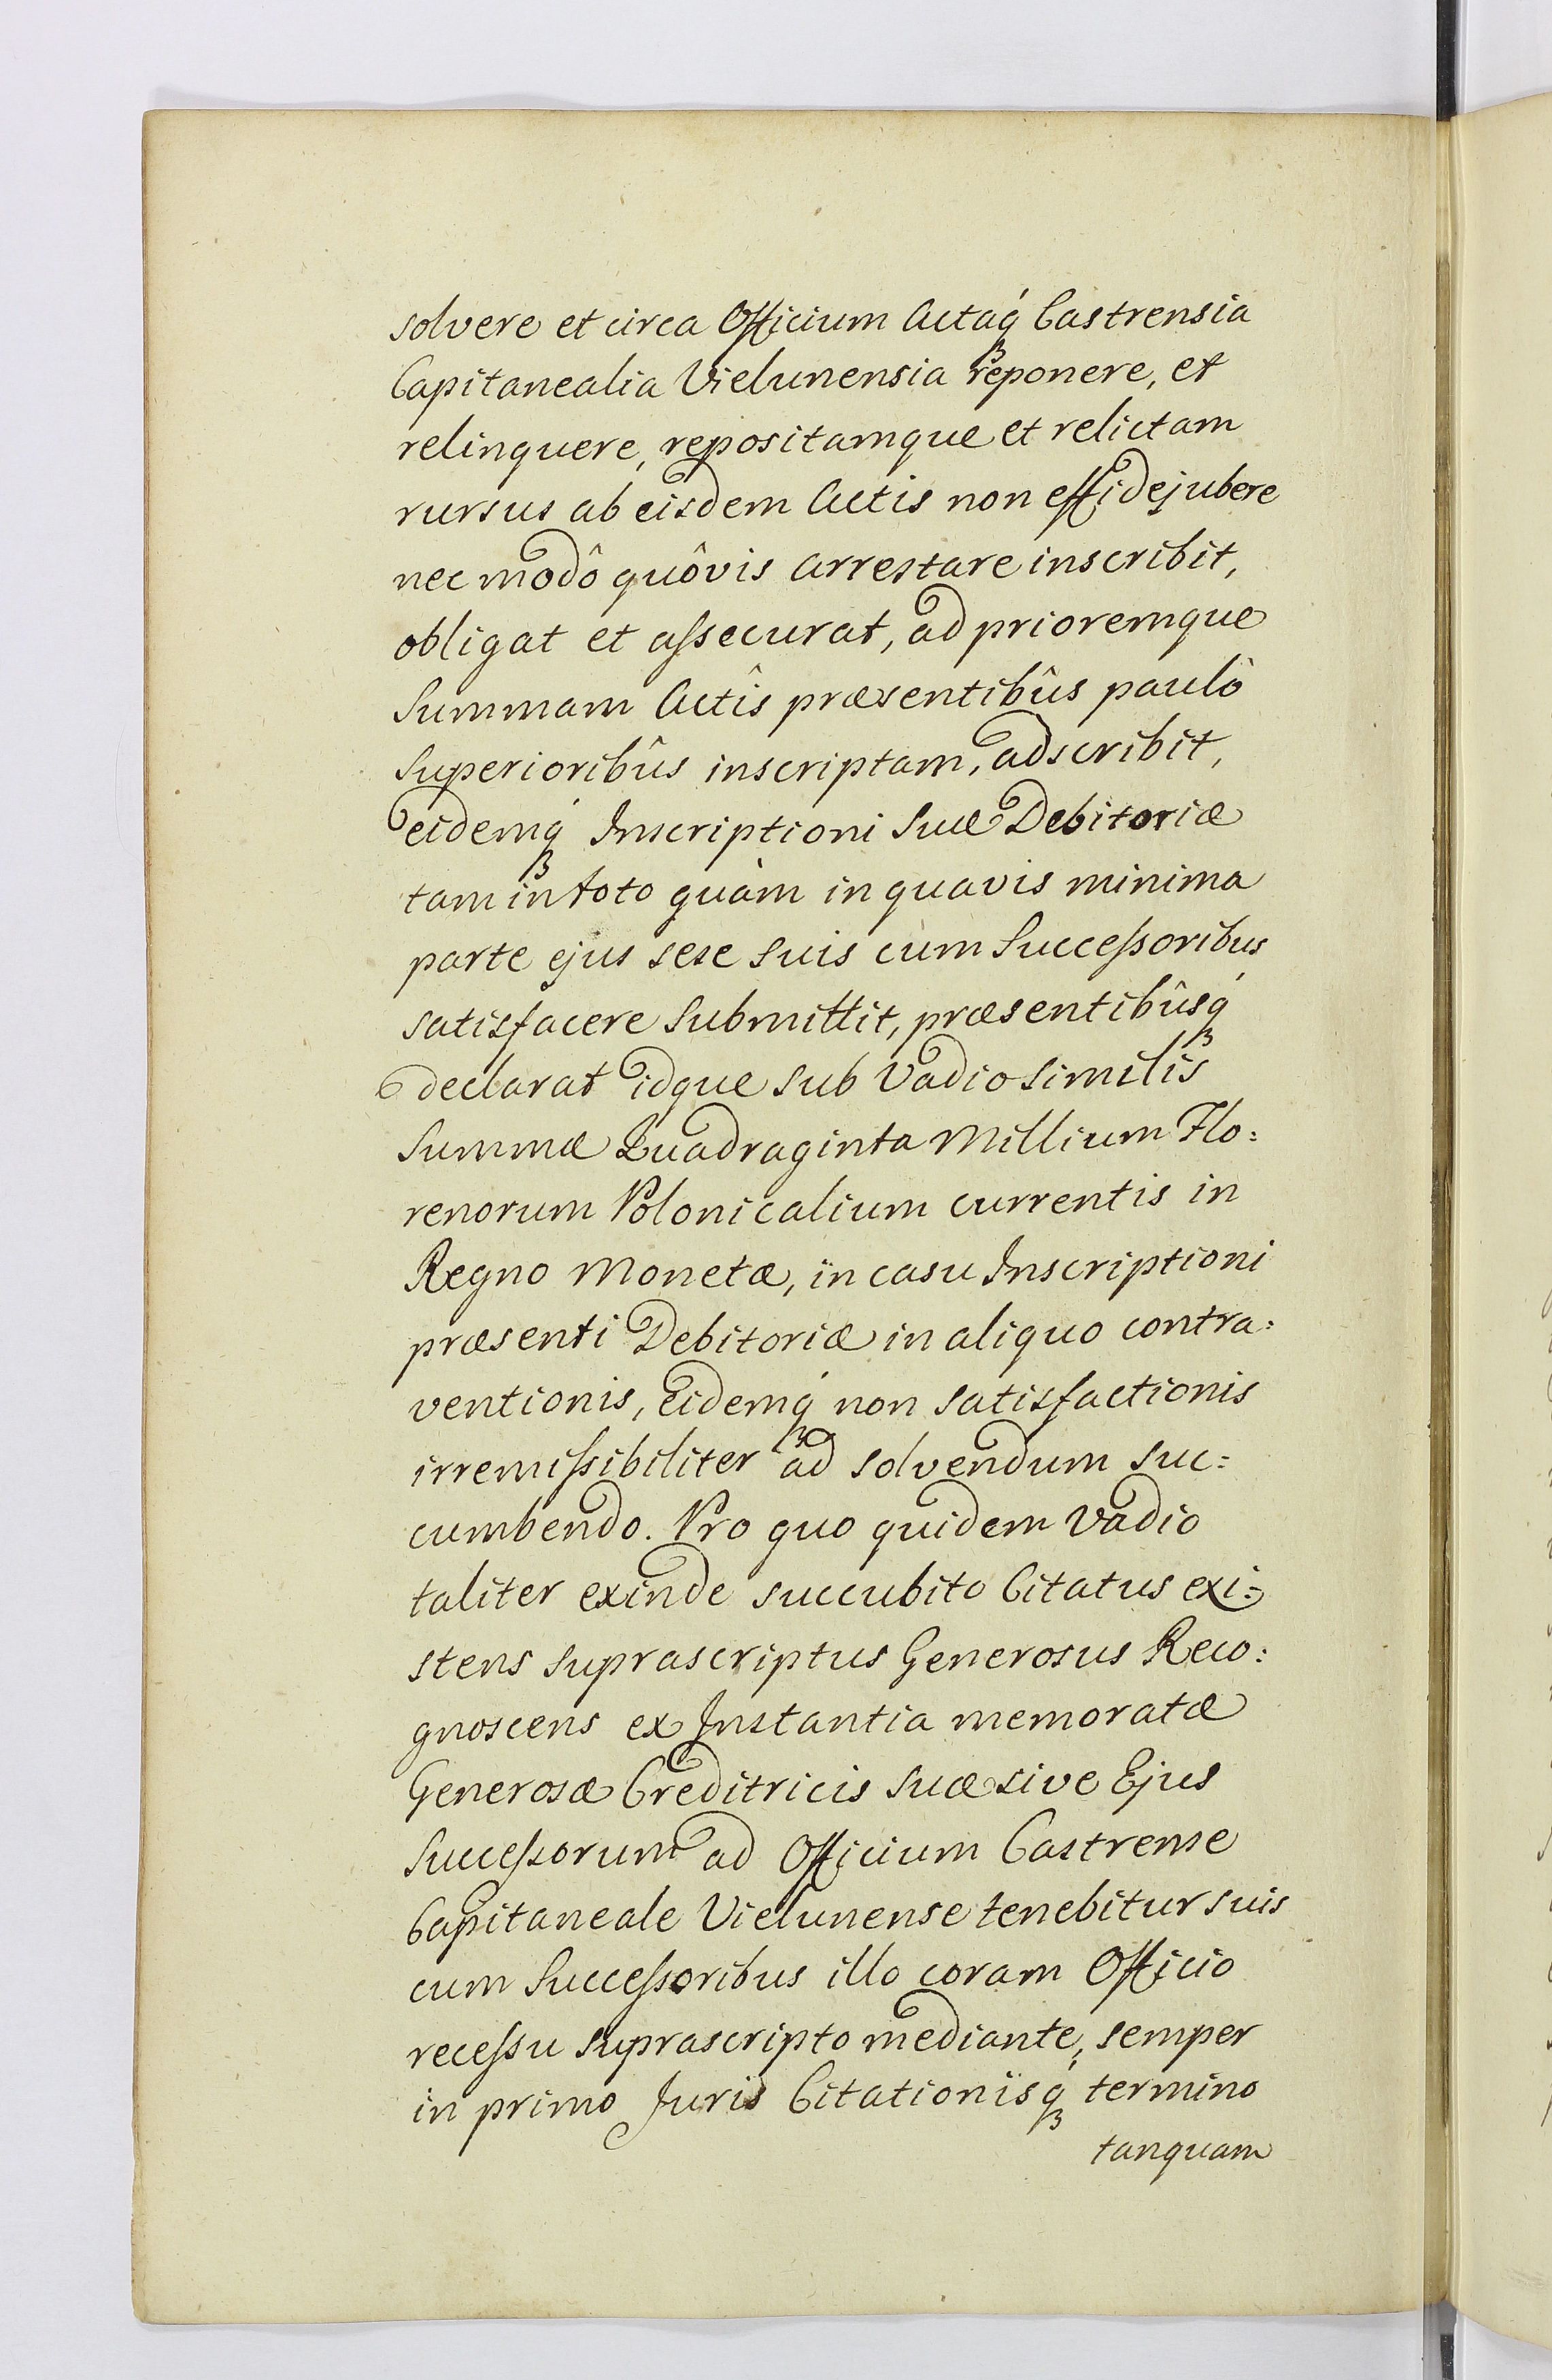 solvere et circa Officium Actaq́ꝫ Castrensia
Capitanealia Vielunensia reponere, et
relinquere, repositamque et relictam
rursus ab eisdem Actis non effidejubere
nec modô quôvis arrestare inscribit,
obligat et aſsecurat, ad prioremque
Summam Actîs præsentibûs paulò
Superioribûs inscriptam, adscribit,
eidemq́ꝫ Inscriptioni Suæ Debitoriæ
tam in toto quàm in quavis minima
parte ejus sese suis cum Succeſsoribus
satisfacere Submittit, præsentibûsq́ꝫ
declarat idque sub Vadio similis
Summæ Quadraginta Millium Flo:
renorum Polonicalium currentis in
Regno Monetæ, in casu Inscriptioni
præsenti Debitoriæ in aliquo contra:
ventionis, Eidemq́ꝫ non satisfactionis
irremiſsibiliter ad solvendum suc:
cumbendo. Pro quo quidem Vadio
taliter exinde succubito Citatus exi:
stens suprascriptus Generosus Reco:
gnoscens ex Instantia memoratæ
Generosæ Creditricis suæ sive Ejus
Succeſsorum ad Officium Castrense
Capitaneale Vielunense tenebitur suis
cum Succeſsoribus illo coram Officio
receſsu suprascripto mediante, semper
in primo Juris Citationisq́ꝫ termino
tanquam